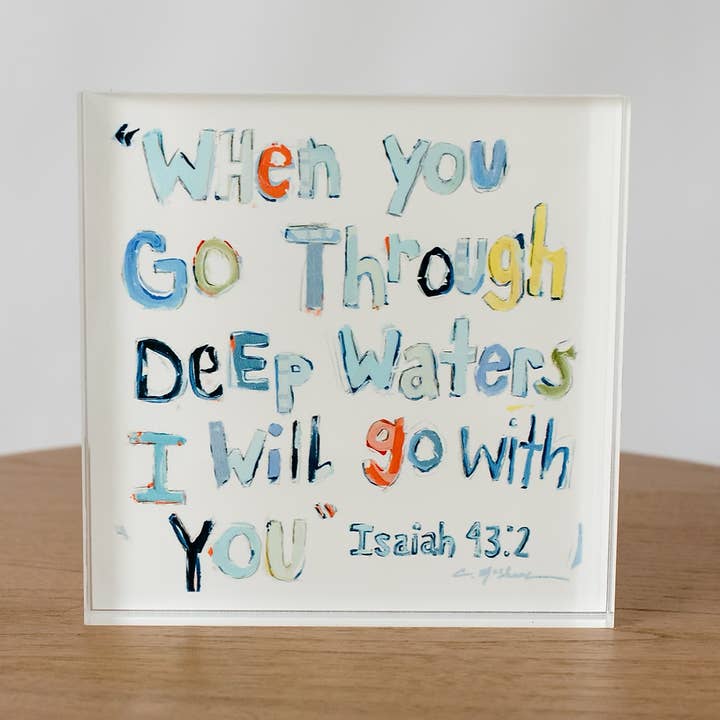 “WHen you
Go Through
DeeP Waters
I Will go with
YOU” Isaiah 43:2